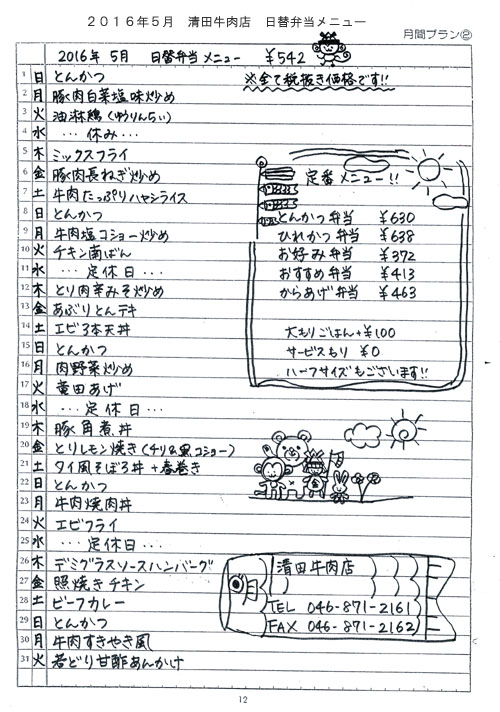 2016年5月 清田牛肉店 日替弁当メニュー
月間プラン②
2016年 5月 日替弁当メニュー ¥542
※全て税抜き価格です!!
1 日 とんかつ
2 月 豚肉白菜塩味炒め
3 火 油淋鶏(ゆうりんちぃ)
4 水 … 休み …
5 木 ミックスフライ
6 金 豚肉長ねぎ炒め
7 土 牛肉たっぷりハヤシライス
8 日 とんかつ
9 月 牛肉塩コショー炒め
10 火 チキン南ばん
11 水 … 定休日 …
12 木 とり肉辛みそ炒め
13 金 あぶりとんテキ
14 土 エビ3本天丼
15 日 とんかつ
16 月 肉野菜炒め
17 火 竜田あげ
18 水 … 定休日 …
19 木 豚角煮丼
20 金 とりレモン焼き(チリ&黒コショー)
21 土 タイ風そぼろ丼 + 春巻き
22 日 とんかつ
23 月 牛肉焼肉丼
24 火 エビフライ
25 水 … 定休日 …
26 木 デミグラスソースハンバーグ
27 金 照焼きチキン
28 土 ビーフカレー
29 日 とんかつ
30 月 牛肉すきやき風
31 火 若どり甘酢あんかけ
定番メニュー!!
とんかつ弁当 ¥630
ひれかつ弁当 ¥638
お好み弁当 ¥372
おすすめ弁当 ¥413
からあげ弁当 ¥463
大もりごはん+¥100
サービスもり ¥0
ハーフサイズもございます!!
金
清田牛肉店
TEL 046-871-2161
FAX 046-871-2162
12